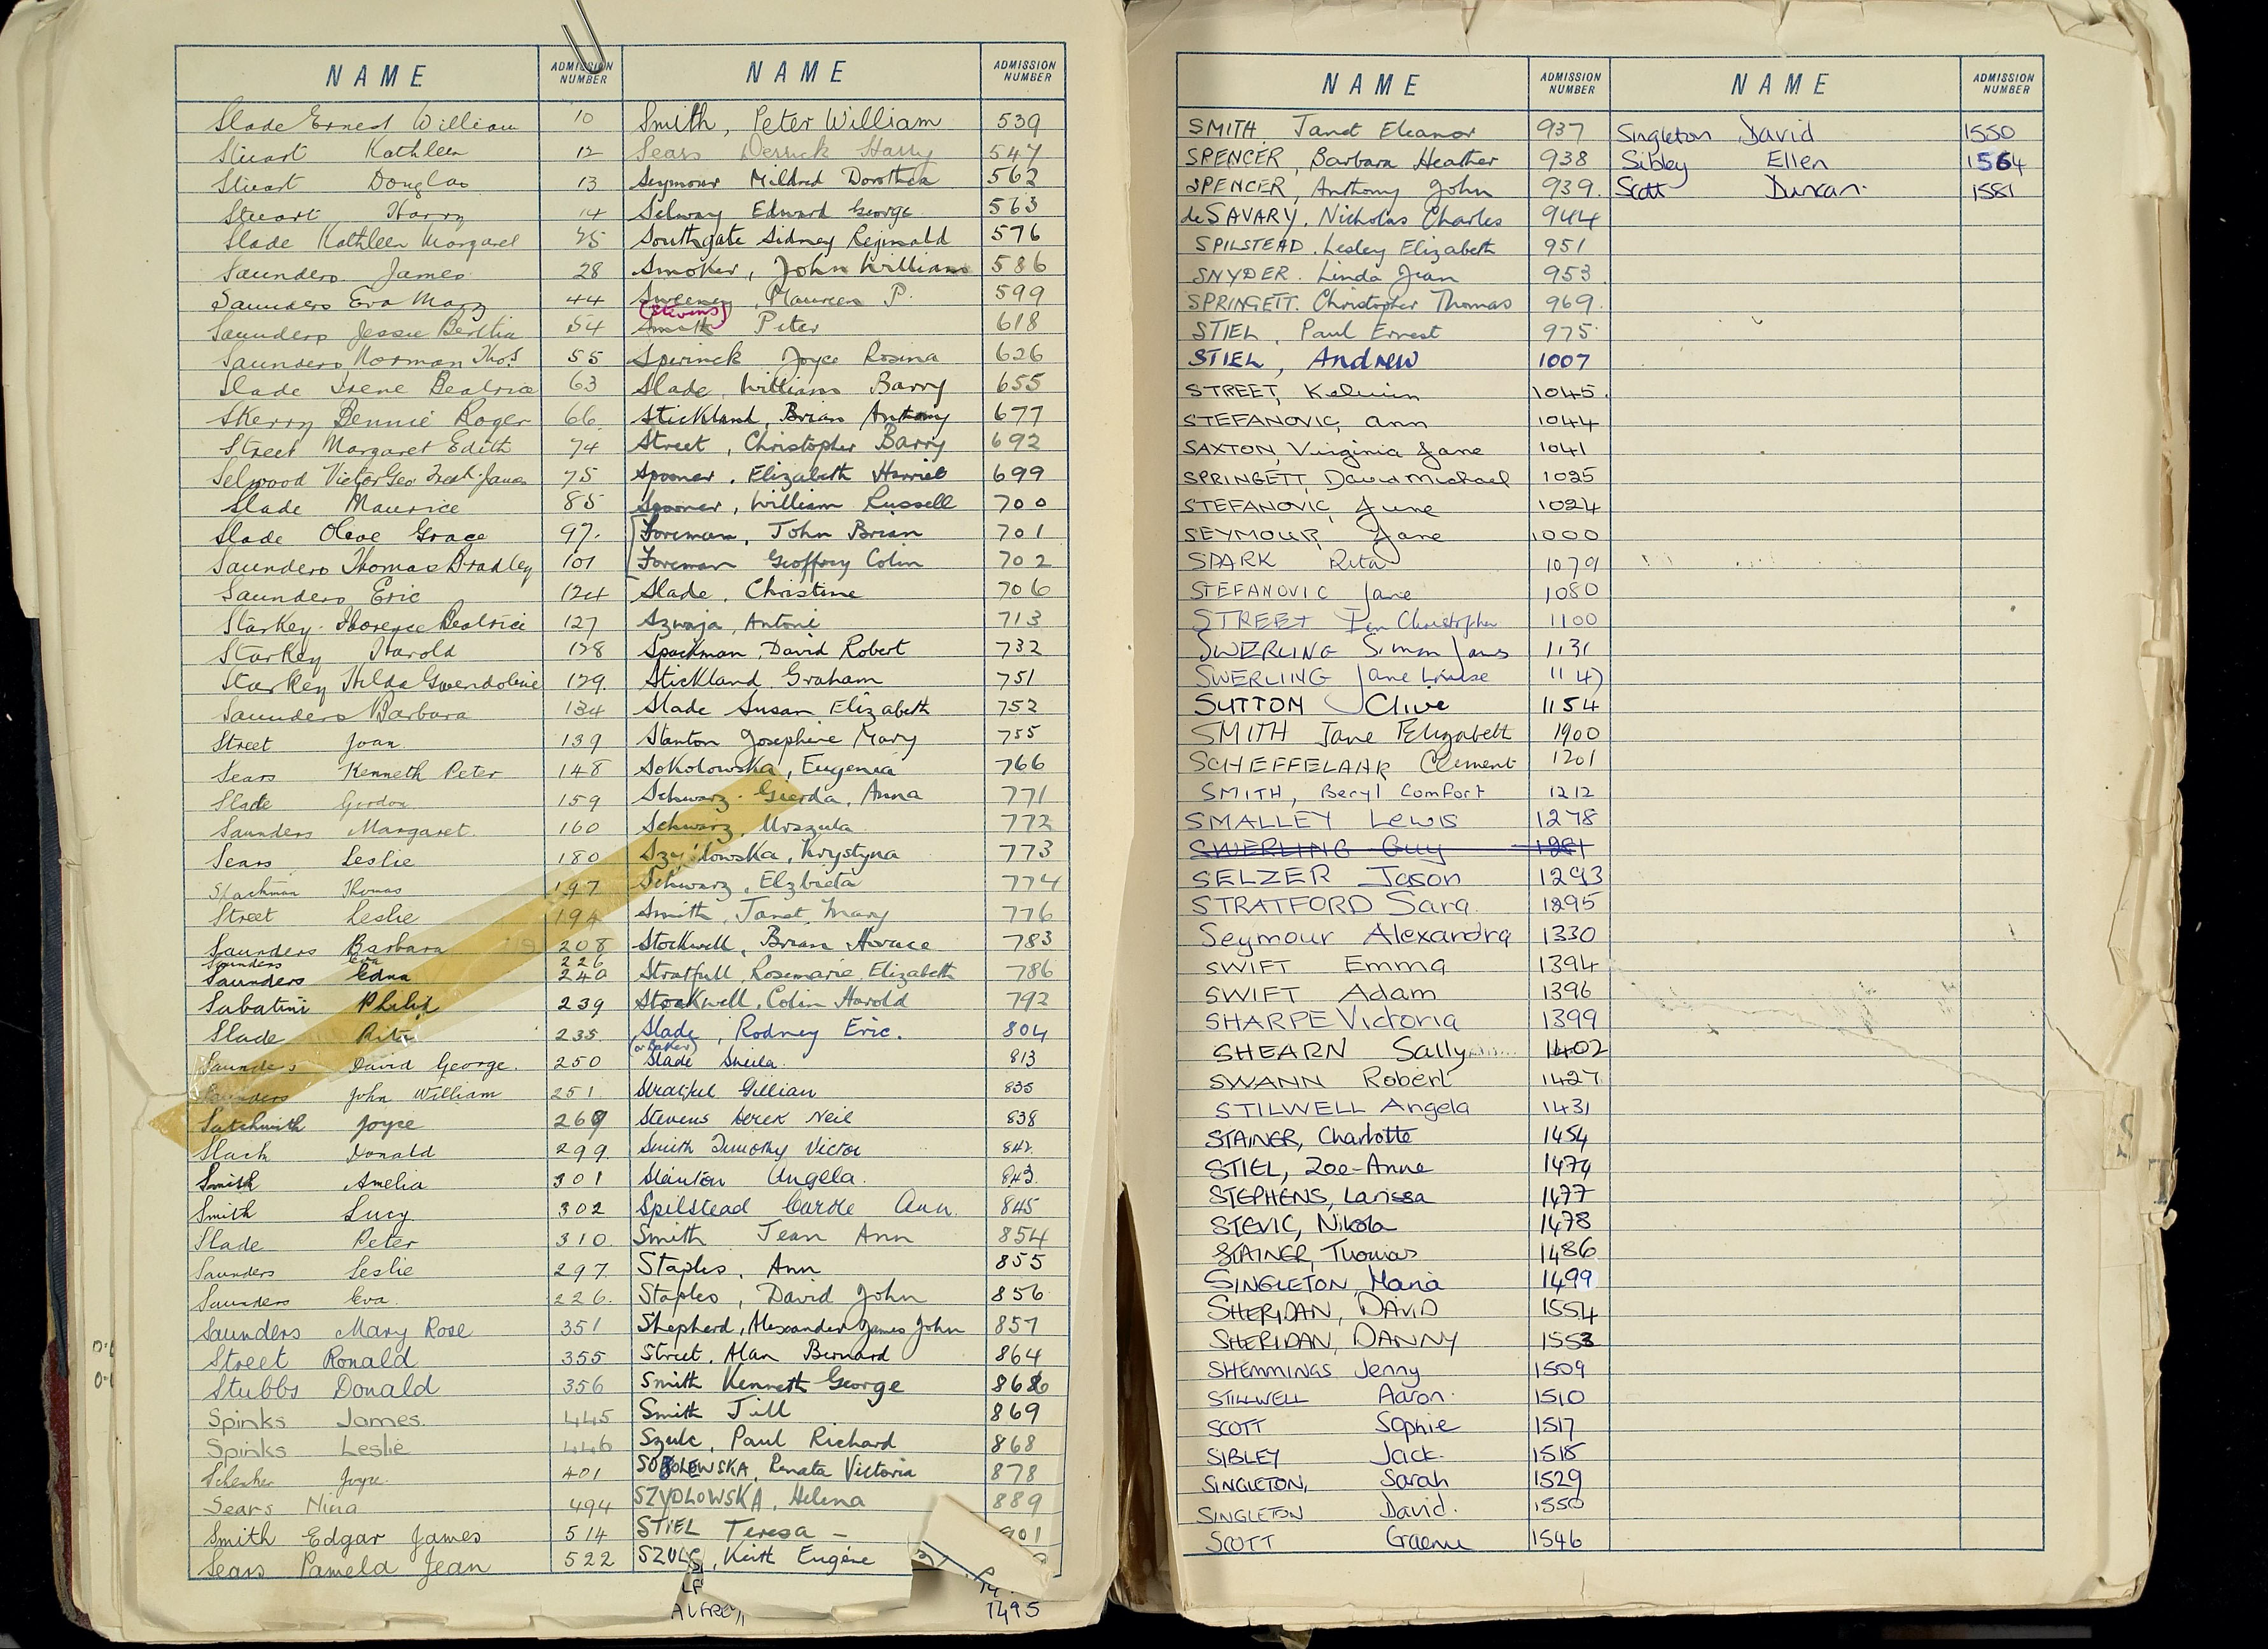 NAME ADMISSION NUMBER
Slade Ernest William 10
Stuart Kathleen 12
Stuart Douglas 13
Stuart Harry 14
Slade Kathleen Margaret 25
Saunders James 28
Saunders Eva Mary 44
Saunders Jessie Bertha 54
Saunders Norman Thos. 55
Slade Irene Beatrice 63
Skerry Bennie Roger 66.
Street Margaret Edith 74
Selwood Victor Geo Fredk. James 75
Slade Maurice 85
Slade Olive Grace 97.
Saunders Thomas Bradley 101
Saunders Eric 124
Starkey Florence Beatrice 127
Starkey Harold 128
Starkey Hilda Gwendoline 129.
Saunders Barbara 134
Street Joan 139
Sears Kenneth Peter 148
Slade Gordon 159
Saunders Margaret. 160
Sears Leslie 180
Spackman Thomas 197
Street Leslie 194
Saunders Barbara 208
Saunders Eva 226
Saunders Edna 240
Sabatini Philip 239
Slade Rita 235.
Saunders David George. 250
Saunders John William 251.
Satchwith Joyce 269
Slach Donald 299.
Smith Amelia 301
Smith Lucy 302
Slade Peter 310.
Saunders Leslie 297.
Saunders Eva. 226.
Saunders Mary Rose 351
Street Ronald 355
Stubbs Donald 356
Spinks James. 445
Spinks Leslie 446
Schenker Joyce 401
Sears Nina 494
Smith Edgar James 514
Sears Pamela Jean 522
NAME ADMISSION NUMBER
Smith, Peter William 539
Sears Derrick Harry 547
Seymour Mildred Dorothea 562
Selway Edward George 563
Southgate Sidney Reginald 576
Smoker, John William 586
Sweeney, Maureen P. 599
(Stevens)
Smith Peter 618
Sperinck Joyce Rosina 626
Slade, William Barry 655
Stickland, Brian Anthony 677
Street, Christopher Barry 692
Spooner, Elizabeth Harriet 699
Spooner, William Russell 700
Foreman, John Brian 701
Foreman Geoffrey Colin 702
Slade, Christine 706
Szwaja, Antoni 713
Spackman, David Robert 732
Stickland Graham 751
Slade Susan Elizabeth 752
Stanton Josephine Mary 755
Sokolowska, Eugenia 766
Schwarz Gerda, Anna 771
Schwarz, Urszula 772
Szydlowska, Krystyna 773
Schwarz, Elzbieta 774
Smith, Janet Mary 776
Stockwell, Brian Horace 783
Stratfull, Rosemarie Elizabeth 786
Stockwell, Colin Harold 792
Slade, Rodney Eric. 804
(or Baker)
Slade Sheila. 813
Stratful Gillian 835
Stevens Derek Neil 838
Smith Timothy Victor 842.
Stanton Angela. 843.
Spilstead Carole Ann. 845
Smith Jean Ann 854
Staples, Ann 855
Staples, David John 856
Shepherd, Alexander James John 857
Street, Alan Bernard 864
Smith Kenneth George 868
Smith Jill 869
Szulc, Paul Richard 868
SOBOLEWSKA, Renata Victoria 878
SZYDLOWSKA, Helena 889
STIEL Teresa – 901
SZULC, Keith Eugene
ALFRED 1495
NAME ADMISSION NUMBER
SMITH, Janet Eleanor 937
SPENCER, Barbara Heather 938
SPENCER, Anthony John 939.
de SAVARY, Nicholas Charles 944
SPILSTEAD, Lesley Elizabeth 951
SNYDER. Linda Jean 953
SPRINGETT. Christopher Thomas 969.
STIEL, Paul Ernest 975
STIEL, Andrew 1007
STREET, Kelvin 1045.
STEFANOVIC, Ann 1044
SAXTON, Virginia Jane 1041
SPRINGETT, David Michael 1025
STEFANOVIC, June 1024
SEYMOUR, Jane 1000
SPARK Rita 1079
STEFANOVIC Jane 1080
STREET Ian Christopher 1100
SWERLING Simon James 1131
SWERLING Jane Louise 1147
SUTTON Clive 1154
SMITH Jane Elizabeth 1900
SCHEFFELAAR Clement 1201
SMITH, Beryl Comfort 1212
SMALLEY Lewis 1278
SWERLING Guy 1281
SELZER Jason 1293
STRATFORD Sara 1295
Seymour Alexandra 1330
SWIFT Emma 1394
SWIFT Adam 1396
SHARPE Victoria 1399
SHEARN Sally 1402
SWANN Robert 1427
STILWELL Angela 1431
STAINER, Charlotte 1454
STIEL, Zoe-Anne 1474
STEPHENS, Larissa 1477
STEVIC, Nikola 1478
STAINER, Thomas 1486
SINGLETON, Maria 1499
SHERIDAN, DAVID 1554
SHERIDAN, DANNY 1553
SHEMMINGS Jenny 1509
STILLWELL Aaron. 1510
SCOTT Sophie 1517
SIBLEY Jack. 1518
SINGLETON, Sarah 1529
SINGLETON David. 1550
SCOTT Graeme 1546
NAME ADMISSION NUMBER
Singleton David 1550
Sibley Ellen 1564
Scott Duncan. 1581